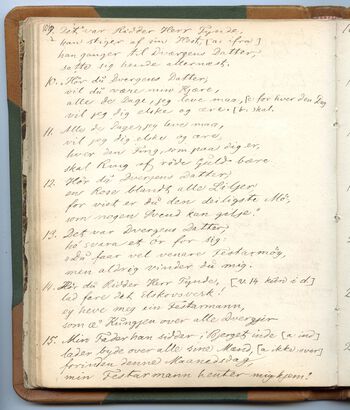 9. Det var Ridder Herr Tynde,
han stiger af sin Hest, [a: fra]
han ganger til Dvergens Datter,
satte sig hende allernæst.
10. Hør du Dvergens Datter,
vil du være min Kjære,
alle de Dage, jeg leve maa, [c for hver den Dag
vil jeg dig elske og ære. [b. skal.
11. Alle de Dage, jeg leve maa,
vil jeg dig elske og ære,
hver den Ting, som paa dig er,
skal Knap af röder Guld bære.
12. Hör du Dvergens Datter,
ene Rose blandt alle Liljer
for vist er du den deiligste Mö,
som nogen Svend kan gilje."
13. Det var Dvergens Datter,
hö svara et Or for sig:
"Du faar vel venare Festarmöy,
men aldrig vinder du mig.
14. Hör du Ridder Herr Tynde, [V. 14 i d]
lad fare det Elskovsverk!
eg heve meg ein Festarmann,
som æ Kungjen over alle Dvergjir
15. Min Fader han sidder i Berget inde [a ind]
lader byde over alle sine Mænd, [a ikke over]
forinden denne Maanedsdag
min Festarmann henter mig hjem."